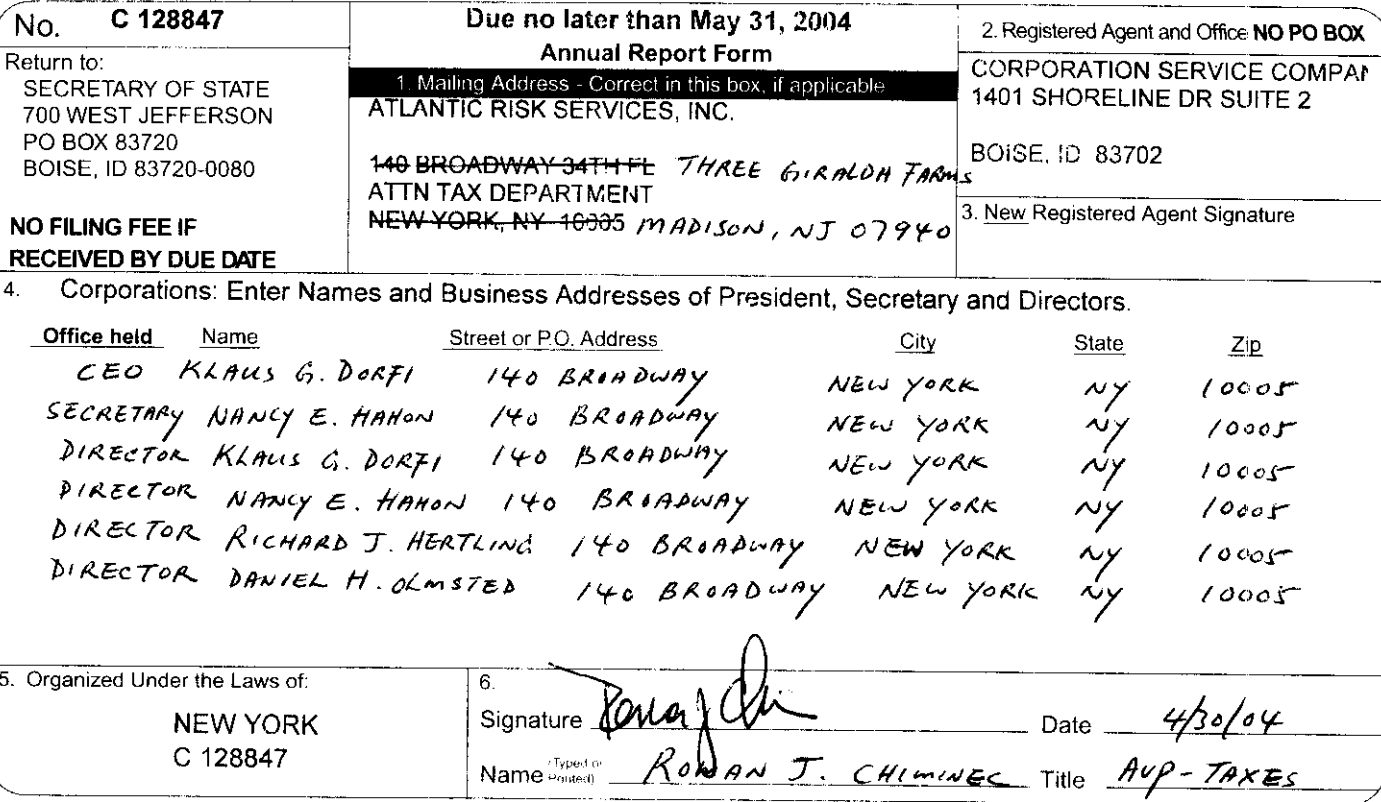 No. C 128847
Return to:
SECRETARY OF STATE
700 WEST JEFFERSON
PO BOX 83720
BOISE, ID 83720-0080
NO FILING FEE IF
RECEIVED BY DUE DATE
Due no later than May 31, 2004
Annual Report Form
1. Mailing Address - Correct in this box, if applicable
ATLANTIC RISK SERVICES, INC.
140 BROADWAY 34TH FL THREE GIRALDA FARMS
ATTN TAX DEPARTMENT
NEW YORK, NY 10005 MADISON, NJ 07940
2. Registered Agent and Office NO PO BOX
CORPORATION SERVICE COMPAN
1401 SHORELINE DR SUITE 2
BOISE, ID 83702
3. New Registered Agent Signature
4. Corporations: Enter Names and Business Addresses of President, Secretary and Directors.
Office held Name Street or P.O. Address City State Zip
CEO KLAUS G. DORFI 140 BROADWAY NEW YORK NY 10005
SECRETARY NANCY E. HAHON 140 BROADWAY NEW YORK NY 10005
DIRECTOR KLAUS G. DORFI 140 BROADWAY NEW YORK NY 10005
DIRECTOR NANCY E. HAHON 140 BROADWAY NEW YORK NY 10005
DIRECTOR RICHARD J. HERTLING 140 BROADWAY NEW YORK NY 10005
DIRECTOR DANIEL H. OLMSTED 140 BROADWAY NEW YORK NY 10005
5. Organized Under the Laws of:
NEW YORK
C 128847
6.
Signature Date 4/30/04
Name (Typed or Printed) J. CHIMINEC Title AVP-TAXES